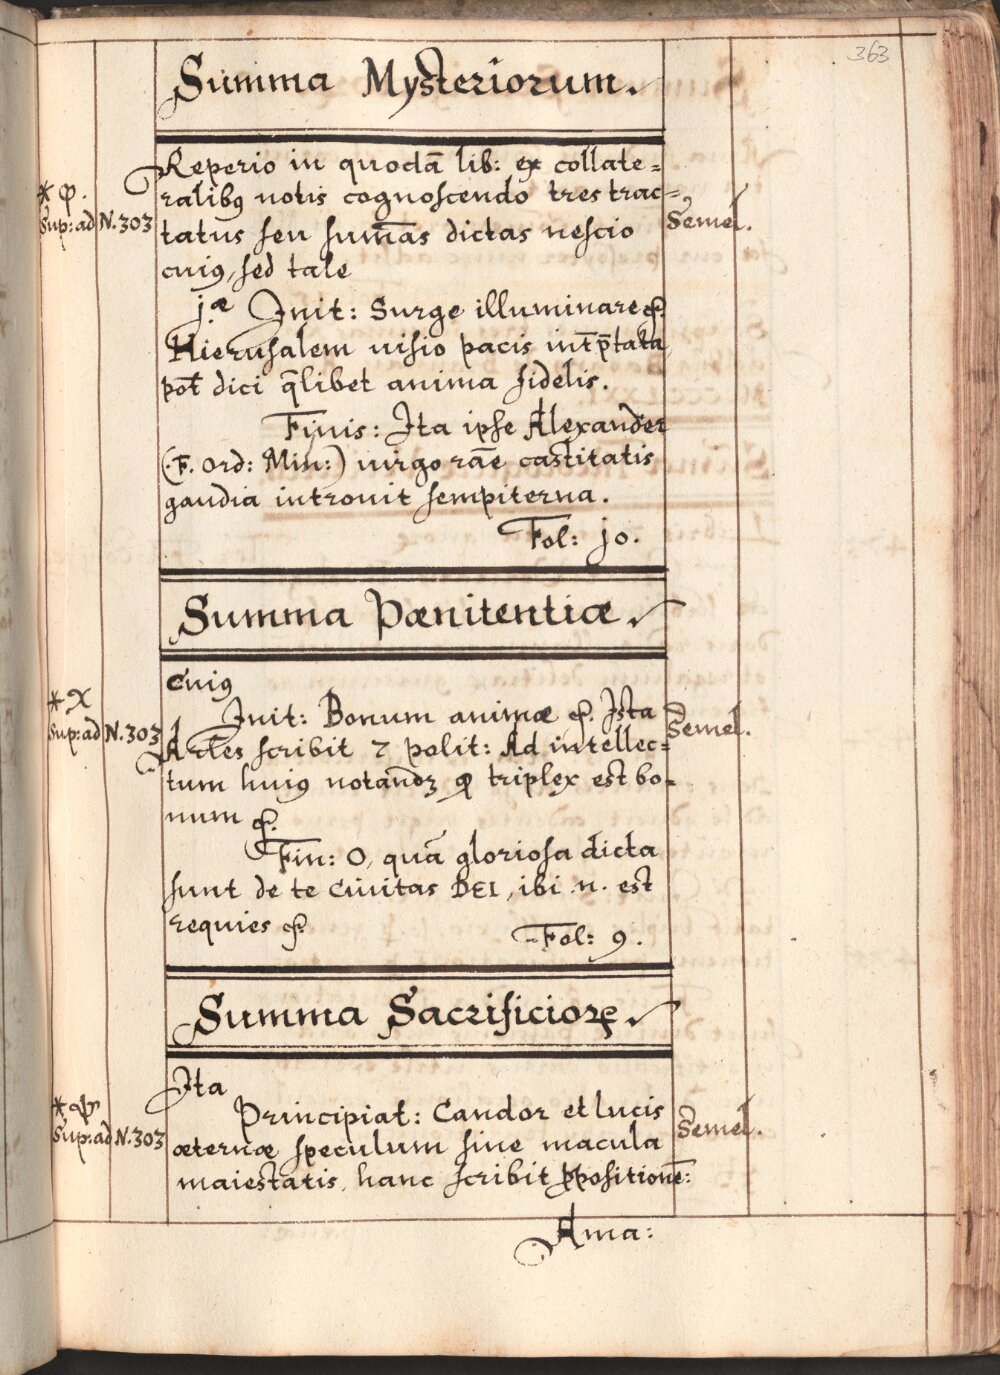 363
Summa Mysteriorum.
Reperio in quodā lib: ex collate=
ralibꝰ notis cognoscendo tres trac=
tatus seu sum̄as dictas nescio
cuiꝰ, sed tale
* φ.
Sup: ad N. 303
Semel.
j.æ Init: Surge illuminare &.
Hierusalem uisio pacis int̄p̄tata
pot̄ dici q̄libet anima fidelis.
Finis: Ita ipse Alexander
(.F. Ord: Min:) uirgo rāe castitatis
gaudia introuit sempiterna.
Fol: jo.
Summa Pænitentiæ.
Cuiꝰ
Init: Bonum animæ &. Ista
Artes scribit 7 polit: Ad intellec=
tum huiꝰ notandꝫ ꝙ triplex est bo=
num &.
* χ
Sup: ad N. 303
Semel.
Fin: O, quā gloriosa dicta
sunt de te Ciuitas DEI, ibi .n. est
requies &.
Fol: 9.
Summa Sacrificioꝝ.
Ita
Principiat: Candor et lucis
æternæ speculum sine macula
maiestatis, hanc scribit ꝓpositionē:
* ψ
Sup: ad N. 303
Semel.
Ama: